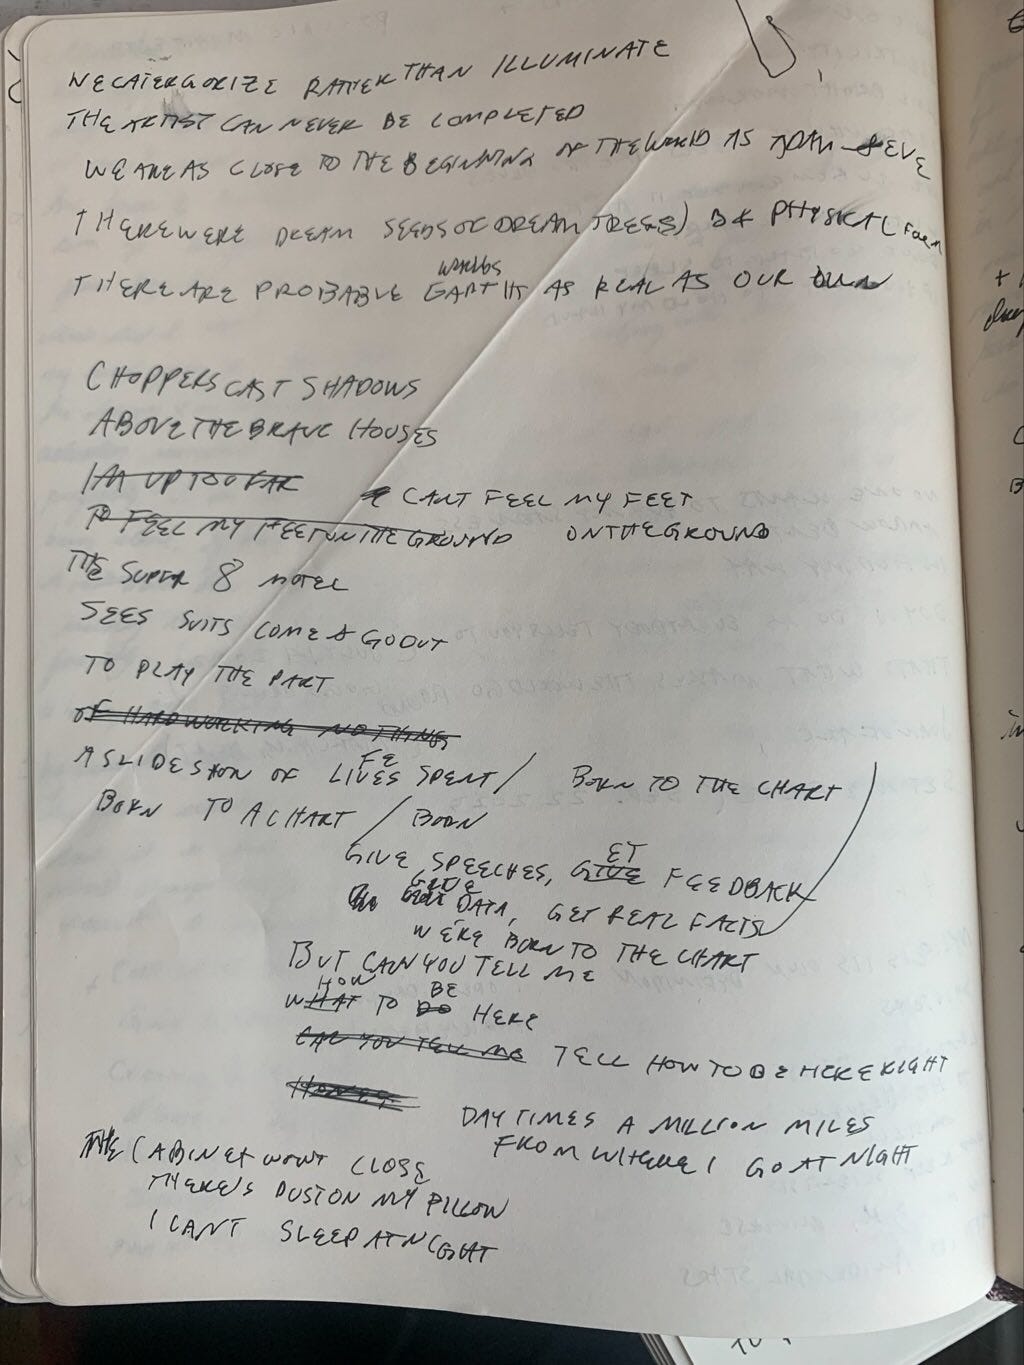 WE CATERGORIZE RATHER THAN ILLUMINATE
THE ARTIST CAN NEVER BE COMPLETED
WE ARE AS CLOSE TO THE BEGINNING OF THE WORLD AS ADAM & EVE
THERE WERE DREAM SEEDS OF DREAM TREES) B4 PHYSICAL FORM
WORLDS
THERE ARE PROBABLE EARTHS AS REAL AS OUR OWN
CHOPPERS CAST SHADOWS
ABOVE THE BRAVE HOUSES
I'M UP TOO FAR
CANT FEEL MY FEET
TO FEEL MY FEET ON THE GROUND ON THE GROUND
THE SUPER 8 MOTEL
SEES SUITS COME & GO OUT
TO PLAY THE PART
OF HARDWORKING NOTHINGS
FE
A SLIDESHOW OF LIVES SPENT / BORN TO THE CHART
BORN TO A CHART / BORN
ET
GIVE SPEECHES, GIVE FEEDBACK
GIVE
DATA, GET REAL FACTS
WE'RE BORN TO THE CHART
BUT CAN YOU TELL ME
HOW BE
WHAT TO DO HERE
CAN YOU TELL ME TELL HOW TO BE HERE RIGHT
DAYTIMES A MILLION MILES
FROM WHERE I GO AT NIGHT
THE CABINET WONT CLOSE
THERE'S DUST ON MY PILLOW
I CANT SLEEP AT NIGHT